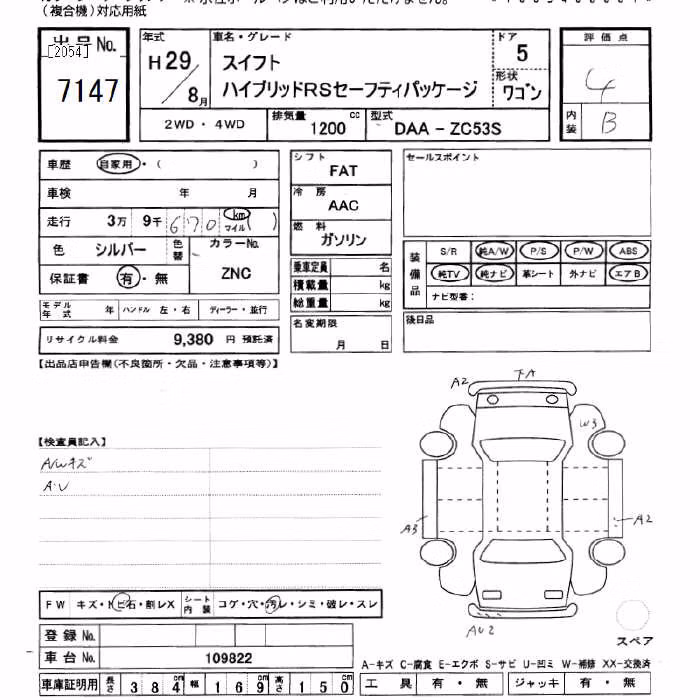 (複合機)対応用紙
出品No.
[2054]
7147
年式
H29/8月
車名・グレード
スイフト
ハイブリッドRSセーフティパッケージ
ドア
5
形状
ワゴン
評価点
4
内装
B
2WD・4WD
排気量
1200 cc
型式
DAA－ZC53S
車歴 自家用・( )
車検 年 月
走行 3万 9千 670 km マイル ( )
色 シルバー 色替 カラーNo.
保証書 有・無 ZNC
モデル年式 年 ハンドル 左・右 ディーラー・並行
リサイクル料金 9,380 円 預託済
シフト
FAT
冷房
AAC
燃料
ガソリン
乗車定員 名
積載量 kg
総重量 kg
名変期限
月 日
セールスポイント
装備品
S/R 純A/W P/S P/W ABS
純TV 純ナビ 革シート 外ナビ エアB
ナビ型番:
後日品
【出品店申告欄(不良箇所・欠品・注意事項等)】
【検査員記入】
A/Wキズ
A・U
A2
下A
W3
A3
A2
AU2
スペア
FW キズ・トビ石・割レX シート内装 コゲ・穴・汚レ・シミ・破レ・スレ
登録No.
車台No. 109822
車庫証明用 長さ 384cm 幅 169cm 高さ 150cm
A-キズ C-腐食 E-エクボ S-サビ U-凹ミ W-補修 XX-交換済
工具 有・無 ジャッキ 有・無